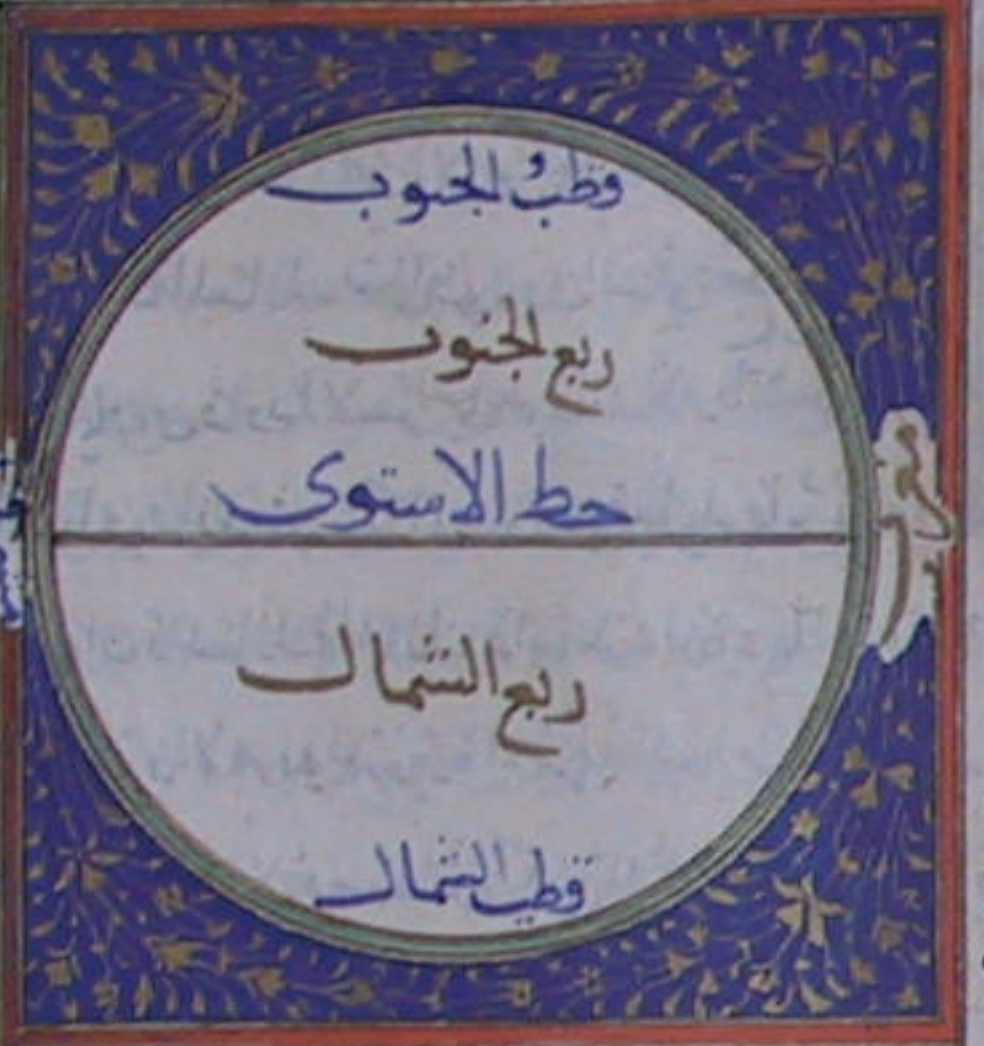 قطبُ الجنوب
ربع الجنوب
خط الاستوى
مغرب
ربع الشمال
قطب الشمال